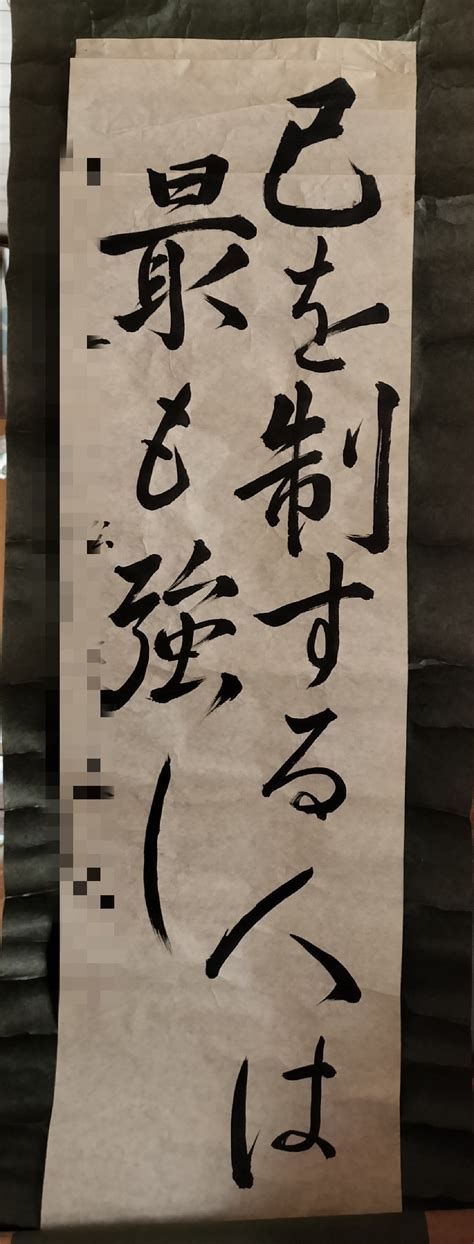 己を制する人は
最も強し